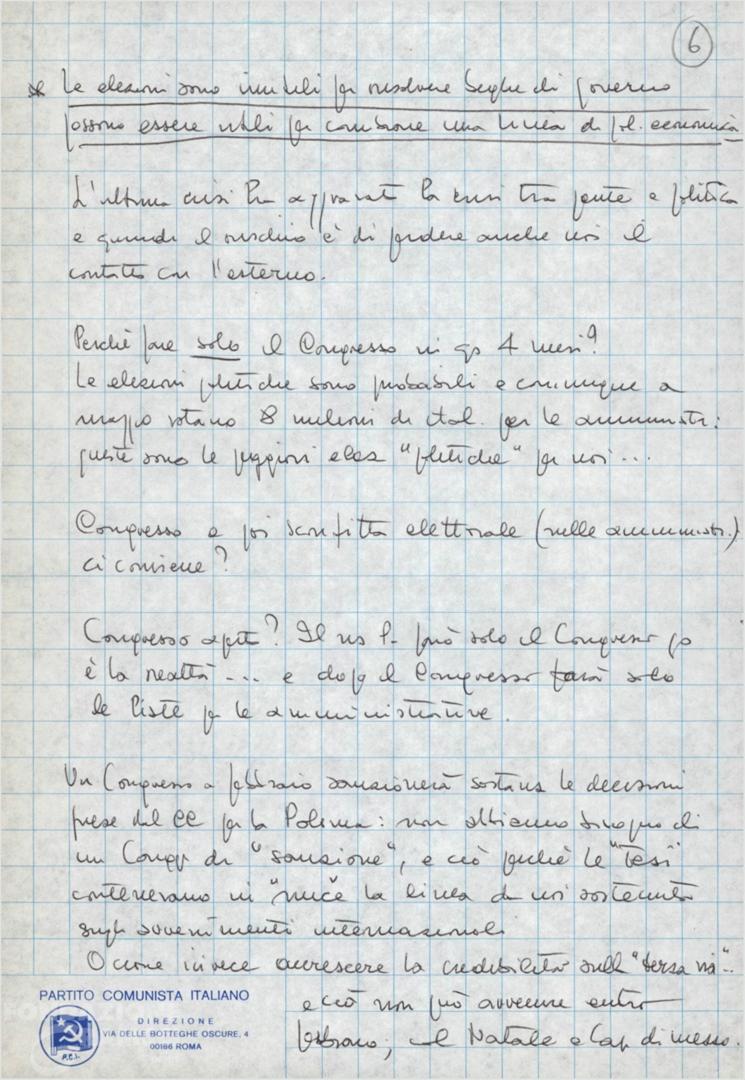 6
* Le elezioni sono inutili per risolvere beghe di governo
possono essere utili per cambiare una linea di pol. economica
L'ultima crisi ha aggravato la crisi tra gente e politica
e quindi il rischio è di perdere anche noi il
contatto con l'esterno.
Perchè fare solo il Congresso in 4 mesi?
Le elezioni politiche sono probabili e comunque a
maggio votano 8 milioni di ital. per le amministr:
queste sono le peggiori elez "politiche" per noi...
Congresso e poi sconfitta elettorale (nelle amministr.)
ci conviene?
Congresso aperto? Il ns P. farà solo il Congresso
è la realtà.... e dopo il Congresso farà solo
le liste per le amministrative.
Un Congresso a febbraio sanzionerà le decisioni
prese dal CC per la Polonia: non abbiamo bisogno di
un Congr di "sanzione", e ciò perchè le "Tesi"
contenevano in "nuce" la linea da noi sostenuta
sugli avvenimenti internazionali
Occorre invece accrescere la credibilità sulla "terza via"
e ciò non può avvenire entro
febbraio; col Natale e Cap. di mezzo.
PARTITO COMUNISTA ITALIANO
DIREZIONE
VIA DELLE BOTTEGHE OSCURE, 4
00186 ROMA
P.C.I.